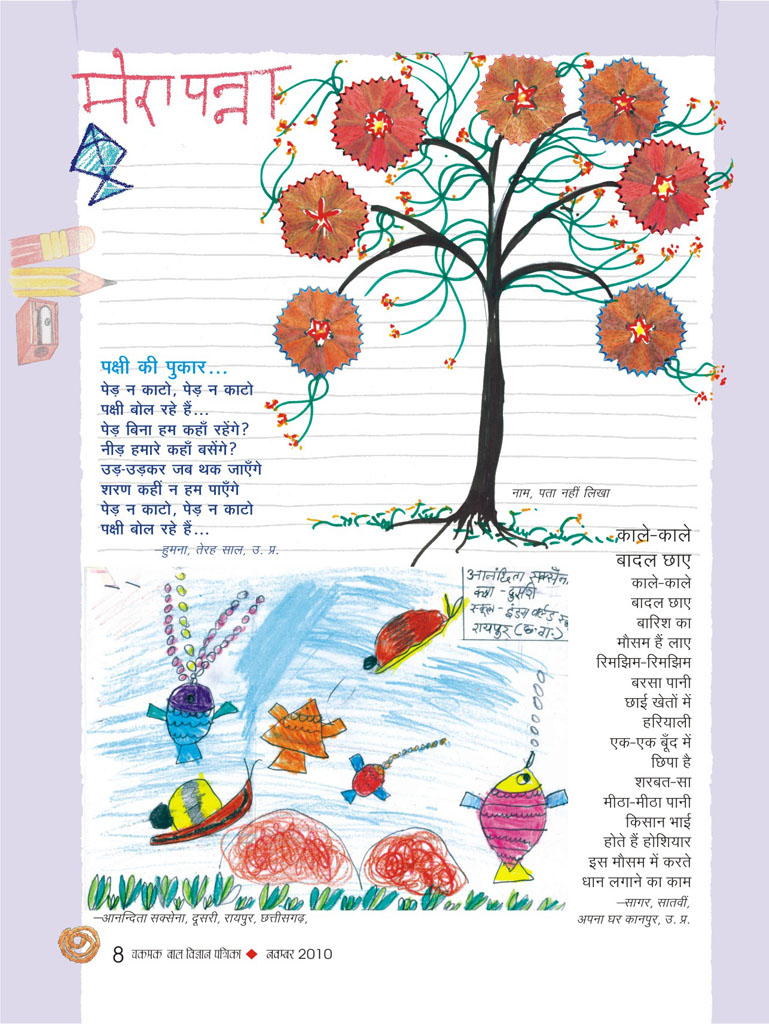 मेरा पन्ना
पक्षी की पुकार...
पेड़ न काटो, पेड़ न काटो
पक्षी बोल रहे हैं...
पेड़ बिना हम कहाँ रहेंगे?
नीड़ हमारे कहाँ बसेंगे?
उड़-उड़कर जब थक जाएँगे
शरण कहीं न हम पाएँगे
पेड़ न काटो, पेड़ न काटो
पक्षी बोल रहे हैं...
–हुमना, तेरह साल, उ. प्र.
नाम, पता नहीं लिखा
काले-काले
बादल छाए
काले-काले
बादल छाए
बारिश का
मौसम हैं लाए
रिमझिम-रिमझिम
बरसा पानी
छाई खेतों में
हरियाली
एक-एक बूँद में
छिपा है
शरबत-सा
मीठा-मीठा पानी
किसान भाई
होते हैं होशियार
इस मौसम में करते
धान लगाने का काम
–सागर, सातवीं,
अपना घर कानपुर, उ. प्र.
आनंदिता सक्सेना
कक्षा - दूसरी
स्कूल - इंडस वर्ल्ड
रायपुर (छ.ग.)
–आनन्दिता सक्सेना, दूसरी, रायपुर, छत्तीसगढ़,
8 चकमक बाल विज्ञान पत्रिका ◆ नवम्बर 2010